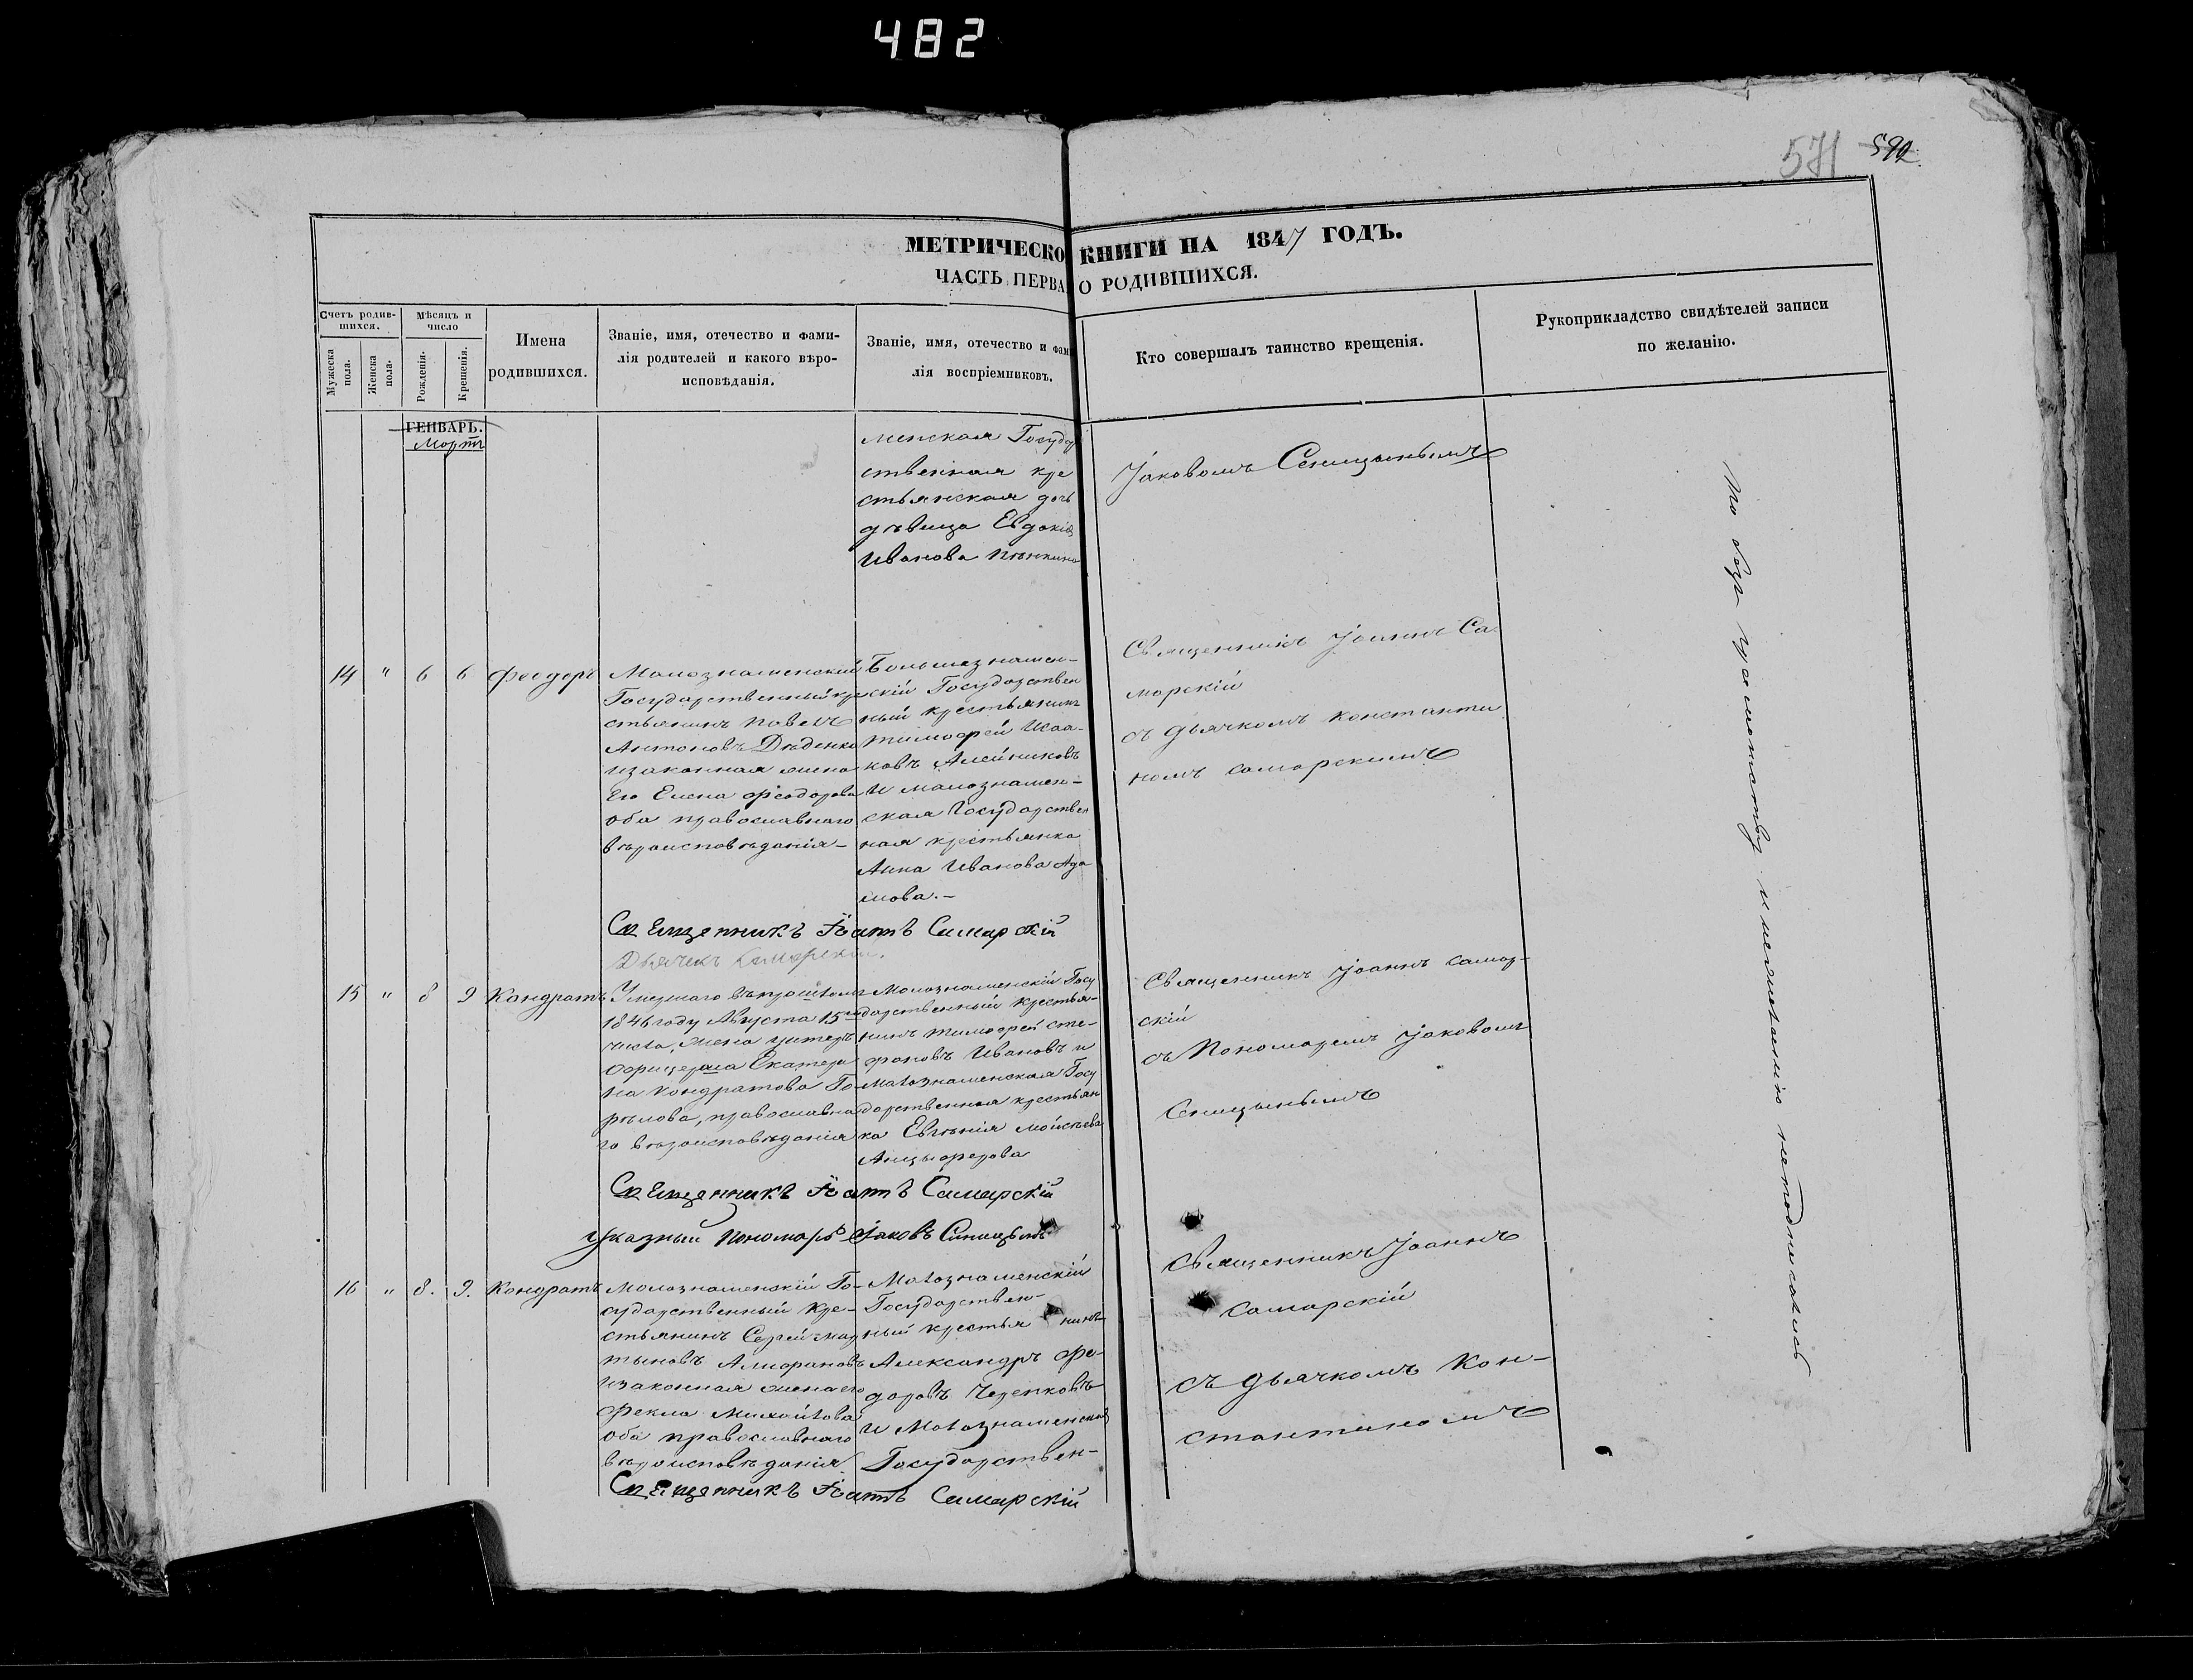 482
571 592
МЕТРИЧЕСКО КНИГИ НА 1847 ГОДЪ.
ЧАСТЬ ПЕРВА О РОДИВШИХСЯ.
Счетъ родив-
шихся.
Мужеска
пола.
Женска
пола.
Мѣсяцъ и
число
Рожденія.
Крещенія.
Имена
родившихся.
Званіе, имя, отечество и фами-
лія родителей и какого вѣро-
исповѣданія.
Званіе, имя, отечество и фами
лія воспріемниковъ.
Кто совершалъ таинство крещенія.
Рукоприкладство свидѣтелей записи
по желанію.
ГЕНВАРЬ.
Мартъ
менская Государ
ственная кре
стьянская дочь
дѣвица Евдокія
Иванова
Іаковомъ Сеницынымъ
14 " 6 6 Феодоръ
Малознаменскій
Государственный кре
стьянинъ Павелъ
Антоновъ Дѣденко
изаконная жена
Его Елена Феодорова
оба православнаго
вѣроисповѣданія-
Большезнамен-
скій Государствен
ный крестьянинъ
Тимофей Исаа-
ковъ Алейниковъ
И малознамен-
ская Государствен
ная крестьянка
Анна Иванова Ада
мова.-
Священникъ Іоаннъ Са
марскій
съ дьячкомъ Константи
номъ Самарскимъ
Священникъ Іоаннъ Самарскій
Дьячекъ Самарскій.
15 " 8 9 Кондратъ
Умершаго въ прошломъ
1846 году Августа 15го
числа, жена унтеръ
офицерша Екатери
на Кондратова Го-
рѣлова, православна
го вѣроисповѣданія
Малознаменскій Госу
дарственный крестья-
нинъ Тимофей Сте-
фановъ Ивановъ и
Малознаменская Госу
дарственная крестьян
ка Евгѣнія Моисѣева
Анцыферова
Священникъ Іоаннъ Самар-
скій
съ Пономаремъ Іаковомъ
Сеницынымъ
Священникъ Іоаннъ Самарскій
Указный Пономарь Іаковъ Синицынъ
16 " 8. 9. Кондратъ
Малознаменскій Го-
сударственный Кре-
стьянинъ Сергей Мар
тыновъ Алифановъ
изаконная жена его
Фекла Михайлова
оба православнаго
вѣроисповѣданія
Малознаменскій
Государствен-
ный крестья нинъ
Александръ Фе-
доровъ Черепковъ
и Малознаменская
Государствен-
Священникъ Іоаннъ
Самарскій
съ дьячкомъ Кон-
стантиномъ
Священникъ Іоаннъ Самарскій
неподписались